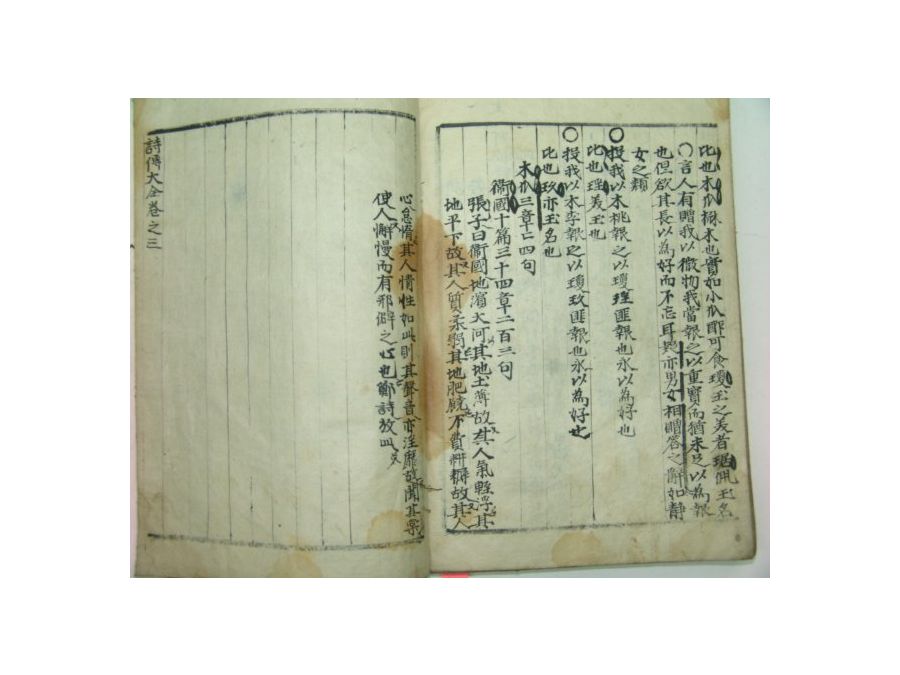 比也木瓜楙木也實如小瓜酢可食瓊玉之美者琚佩玉名
○言人有贈我以微物我當報之以重寶而猶未足以為報
也但欲其長以為好而不忘耳疑亦男女相贈答之辭如靜
女之類
○投我以木桃報之以瓊瑤匪報也永以為好也
比也瑤美玉也
○投我以木李報之以瓊玖匪報也永以為好也
比也玖亦玉名也
木瓜三章章四句
衞國十篇三十四章二百三句
張子曰衞國地濱大河其地土薄故其人氣輕浮其
地平下故其人質柔弱其地肥饒不費耕耨故其人
心怠惰其人情性如此則其聲音亦淫靡故聞其樂
使人懈慢而有邪僻之心也鄭詩放此
詩傳大全卷之三